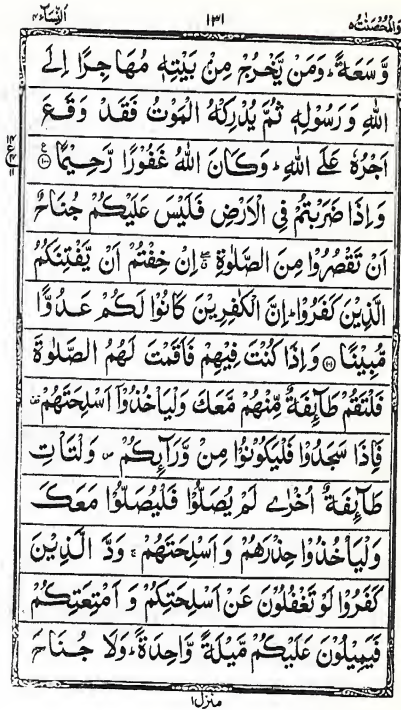 النساء ٤ ١٣١ والمحصنت ٥
وَّسَعَةً ؕ وَمَنْ يَّخْرُجْ مِنْ بَيْتِهٖ مُهَاجِرًا اِلَى
اللّٰهِ وَرَسُوْلِهٖ ثُمَّ يُدْرِكْهُ الْمَوْتُ فَقَدْ وَقَعَ
اَجْرُهٗ عَلَى اللّٰهِ ؕ وَكَانَ اللّٰهُ غَفُوْرًا رَّحِيْمًا ۝١٠٠
وَاِذَا ضَرَبْتُمْ فِى الْاَرْضِ فَلَيْسَ عَلَيْكُمْ جُنَاحٌ
اَنْ تَقْصُرُوْا مِنَ الصَّلٰوةِ ۖ اِنْ خِفْتُمْ اَنْ يَّفْتِنَكُمُ
الَّذِيْنَ كَفَرُوْا ؕ اِنَّ الْكٰفِرِيْنَ كَانُوْا لَكُمْ عَدُوًّا
مُّبِيْنًا ۝١٠١ وَاِذَا كُنْتَ فِيْهِمْ فَاَقَمْتَ لَهُمُ الصَّلٰوةَ
فَلْتَقُمْ طَآئِفَةٌ مِّنْهُمْ مَّعَكَ وَلْيَاْخُذُوْۤا اَسْلِحَتَهُمْ ۫
فَاِذَا سَجَدُوْا فَلْيَكُوْنُوْا مِنْ وَّرَآئِكُمْ ۪ وَلْتَاْتِ
طَآئِفَةٌ اُخْرٰى لَمْ يُصَلُّوْا فَلْيُصَلُّوْا مَعَكَ
وَلْيَاْخُذُوْا حِذْرَهُمْ وَاَسْلِحَتَهُمْ ۚ وَدَّ الَّذِيْنَ
كَفَرُوْا لَوْ تَغْفُلُوْنَ عَنْ اَسْلِحَتِكُمْ وَاَمْتِعَتِكُمْ
فَيَمِيْلُوْنَ عَلَيْكُمْ مَّيْلَةً وَّاحِدَةً ؕ وَلَا جُنَاحَ
منزل ١